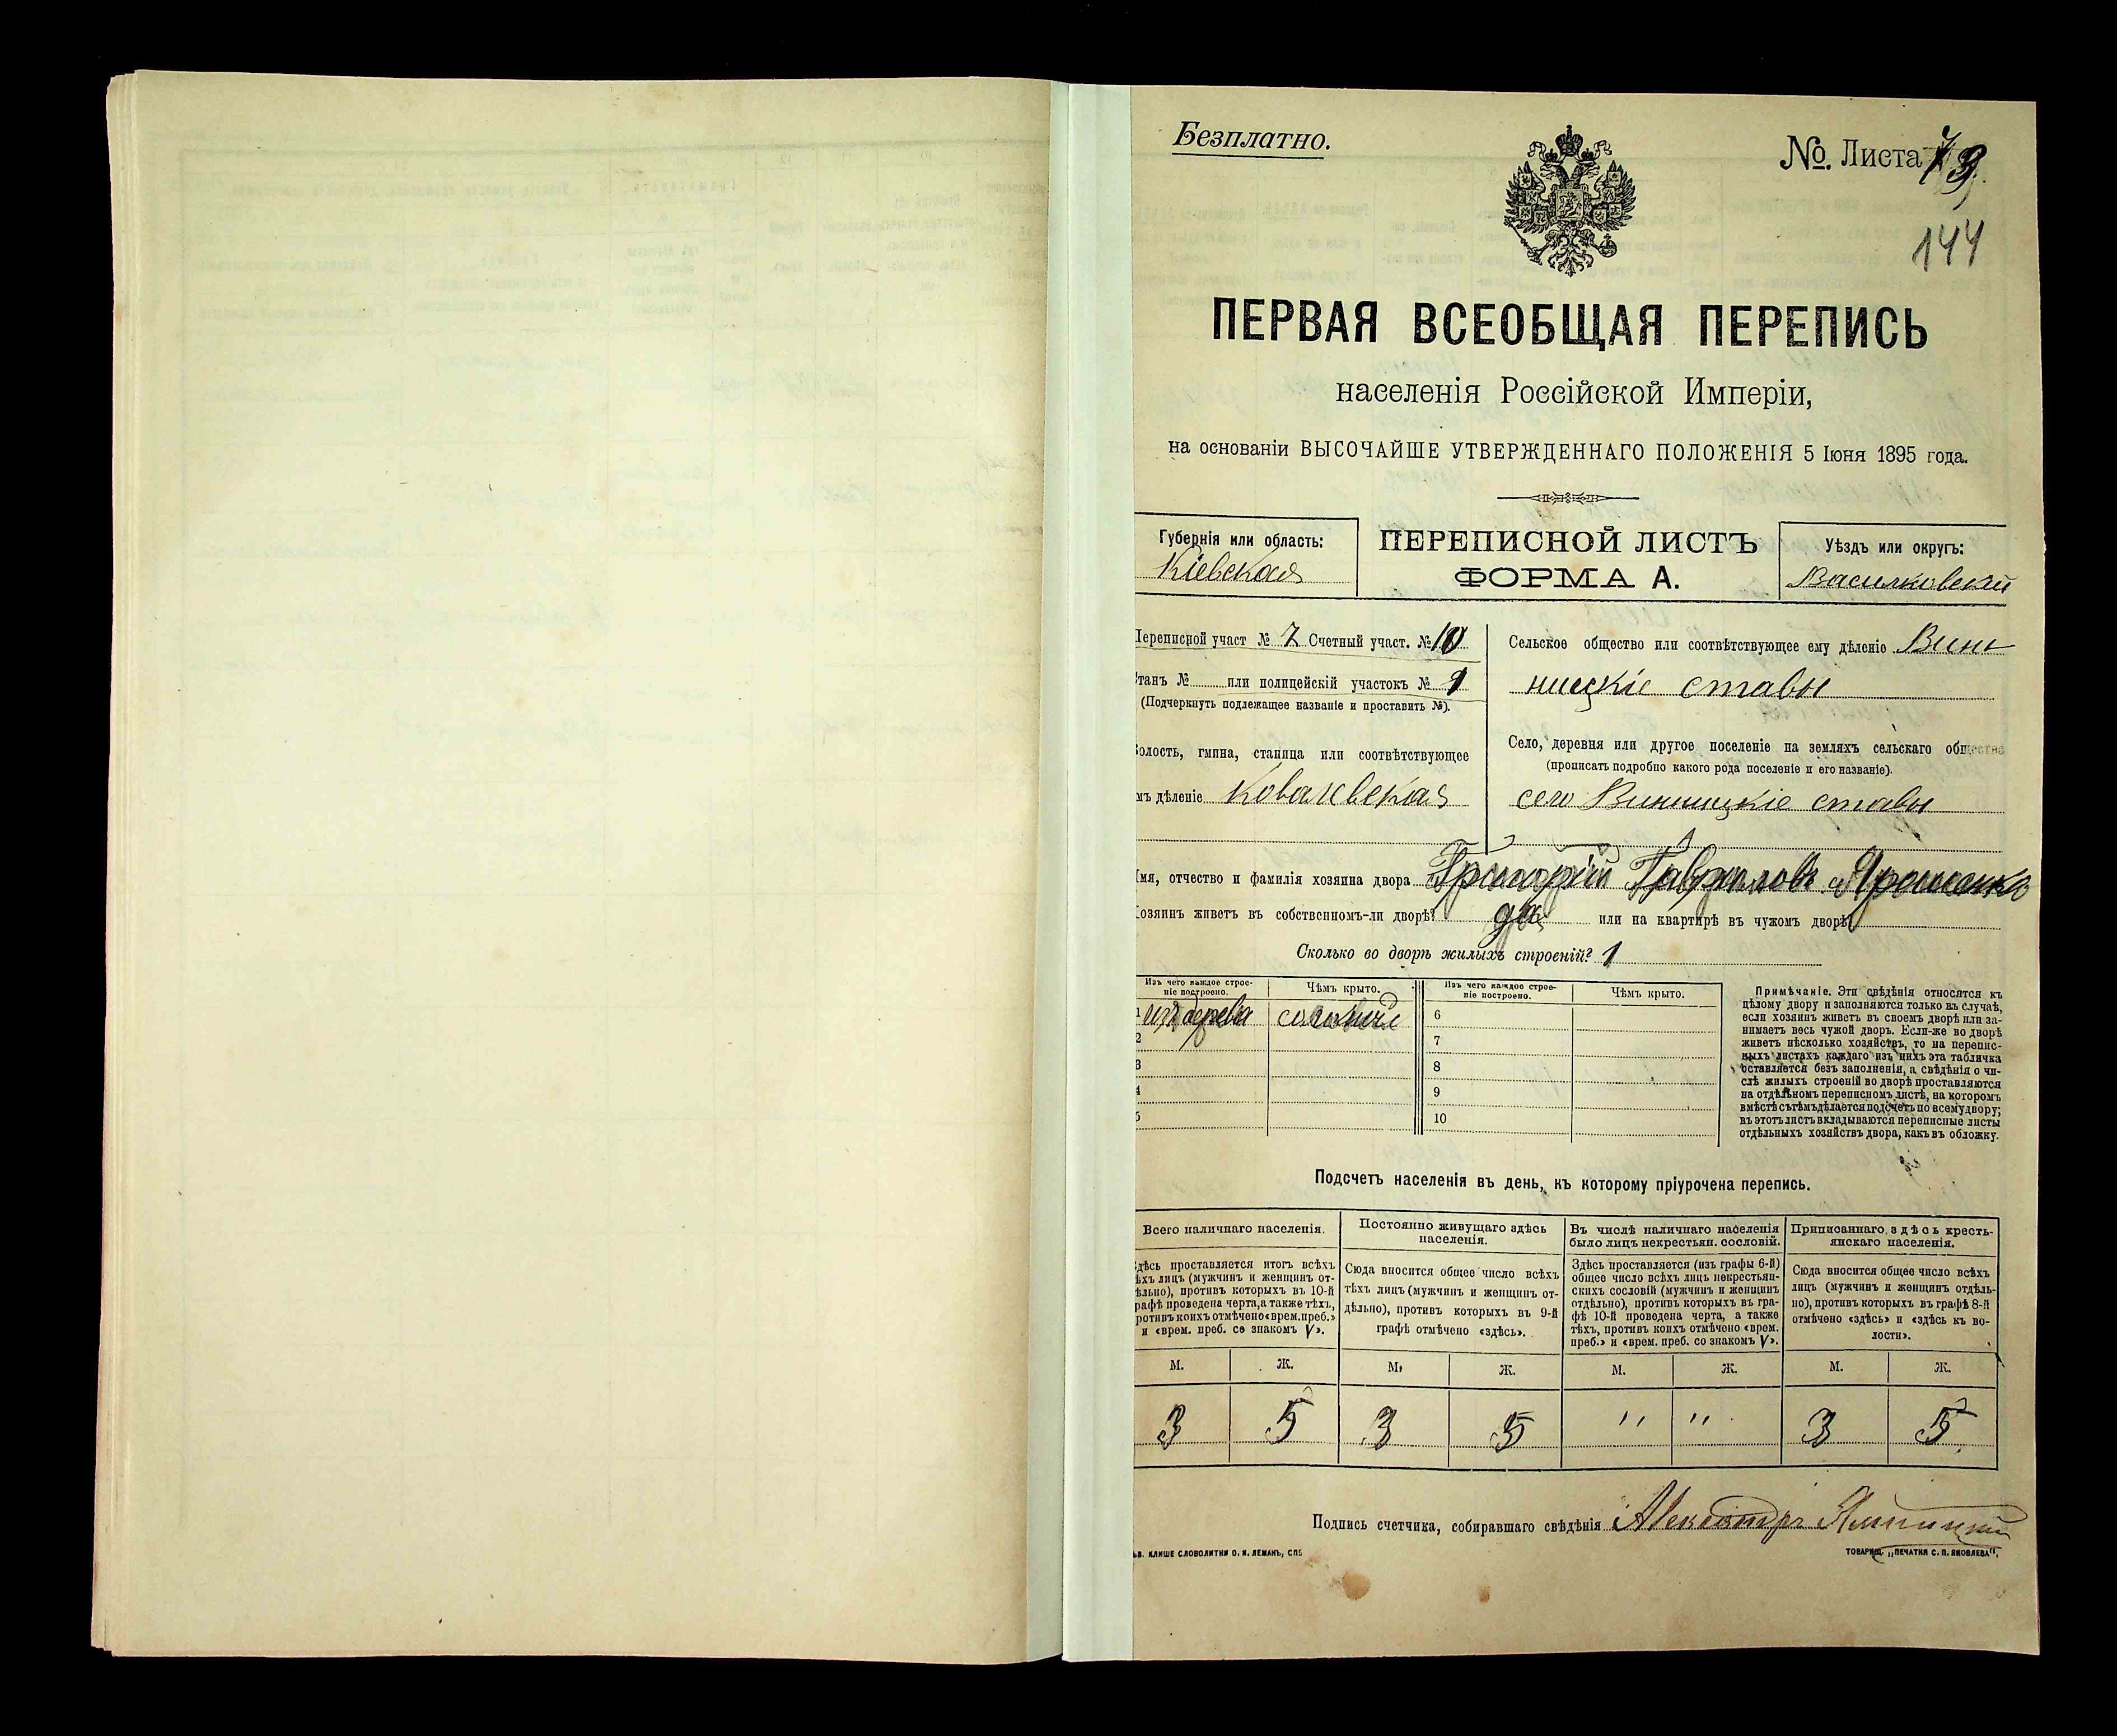 Безплатно.
№. Листа 73.
144
ПЕРВАЯ ВСЕОБЩАЯ ПЕРЕПИСЬ
населенія Россійской Имперіи,
на основаніи ВЫСОЧАЙШЕ УТВЕРЖДЕННАГО ПОЛОЖЕНІЯ 5 Іюня 1895 года.
Губернія или область:
Кіевская
ПЕРЕПИСНОЙ ЛИСТЪ
ФОРМА А.
Уѣздъ или округъ:
Васильковскій
Переписной участ № 7 Счетный участ. № 10
Станъ № или полицейскій участокъ № 1
(Подчеркнуть подлежащее названіе и проставить №).
Волость, гмина, станица или соотвѣтствующее
мъ дѣленіе Ковалевская
Сельское общество или соотвѣтствующее ему дѣленіе Вин
ницкіе ставы
Село, деревня или другое поселеніе на земляхъ сельскаго общества
(прописать подробно какого рода поселеніе и его названіе).
село Винницкіе ставы
Имя, отчество и фамилія хозяина двора Григорій Гавриловъ Ярошенко
Хозяинъ живетъ въ собственномъ-ли дворѣ? да или на квартирѣ въ чужомъ дворѣ
Сколько во дворѣ жилыхъ строеній? 1
Изъ чего каждое строе-
ніе построено.
Чѣмъ крыто.
1 изъ дерева соломой
2
3
4
5
Изъ чего каждое строе-
ніе построено.
Чѣмъ крыто.
6
7
8
9
10
Примѣчаніе. Эти свѣдѣнія относятся къ
цѣлому двору и заполняются только въ случаѣ,
если хозяинъ живетъ въ своемъ дворѣ или за-
нимаетъ весь чужой дворъ. Если-же во дворѣ
живетъ нѣсколько хозяйствъ, то на перепис-
ныхъ листахъ каждаго изъ нихъ эта табличка
оставляется безъ заполненія, а свѣдѣнія о чи-
слѣ жилыхъ строеній во дворѣ проставляются
на отдѣльномъ переписномъ листѣ, на которомъ
вмѣстѣ съ тѣмъ дѣлается подсчетъ по всему двору;
въ этотъ листъ вкладываются переписные листы
отдѣльныхъ хозяйствъ двора, какъ въ обложку.
Подсчетъ населенія въ день, къ которому пріурочена перепись.
Всего наличнаго населенія.
Здѣсь проставляется итогъ всѣхъ
ѣхъ лицъ (мужчинъ и женщинъ от-
ѣльно), противъ которыхъ въ 10-й
рафѣ проведена черта, а также тѣхъ,
ротивъ коихъ отмѣчено «врем. преб.»
и «врем. преб. со знакомъ V».
Постоянно живущаго здѣсь
населенія.
Сюда вносится общее число всѣхъ
тѣхъ лицъ (мужчинъ и женщинъ от-
дѣльно), противъ которыхъ въ 9-й
графѣ отмѣчено «здѣсь».
Въ числѣ наличнаго населенія
было лицъ некрестьян. сословій.
Здѣсь проставляется (изъ графы 6-й)
общее число всѣхъ лицъ некрестьян-
скихъ сословій (мужчинъ и женщинъ
отдѣльно), противъ которыхъ въ гра-
фѣ 10-й проведена черта, а также
тѣхъ, противъ коихъ отмѣчено «врем.
преб.» и «врем. преб. со знакомъ V».
Приписаннаго здѣсь кресть-
янскаго населенія.
Сюда вносится общее число всѣхъ
лицъ (мужчинъ и женщинъ отдѣль-
но), противъ которыхъ въ графѣ 8-й
отмѣчено «здѣсь» и «здѣсь къ во-
лости».
М. Ж. М. Ж. М. Ж. М. Ж.
3 5 3 5 " " 3 5
Подпись счетчика, собиравшаго свѣдѣнія Александръ
ЬВ. КЛИШЕ СЛОВОЛИТНИ О. И. ЛЕМАНЪ, СПБ
ТОВАРИЩ. „ПЕЧАТНЯ С. П. ЯКОВЛЕВА".